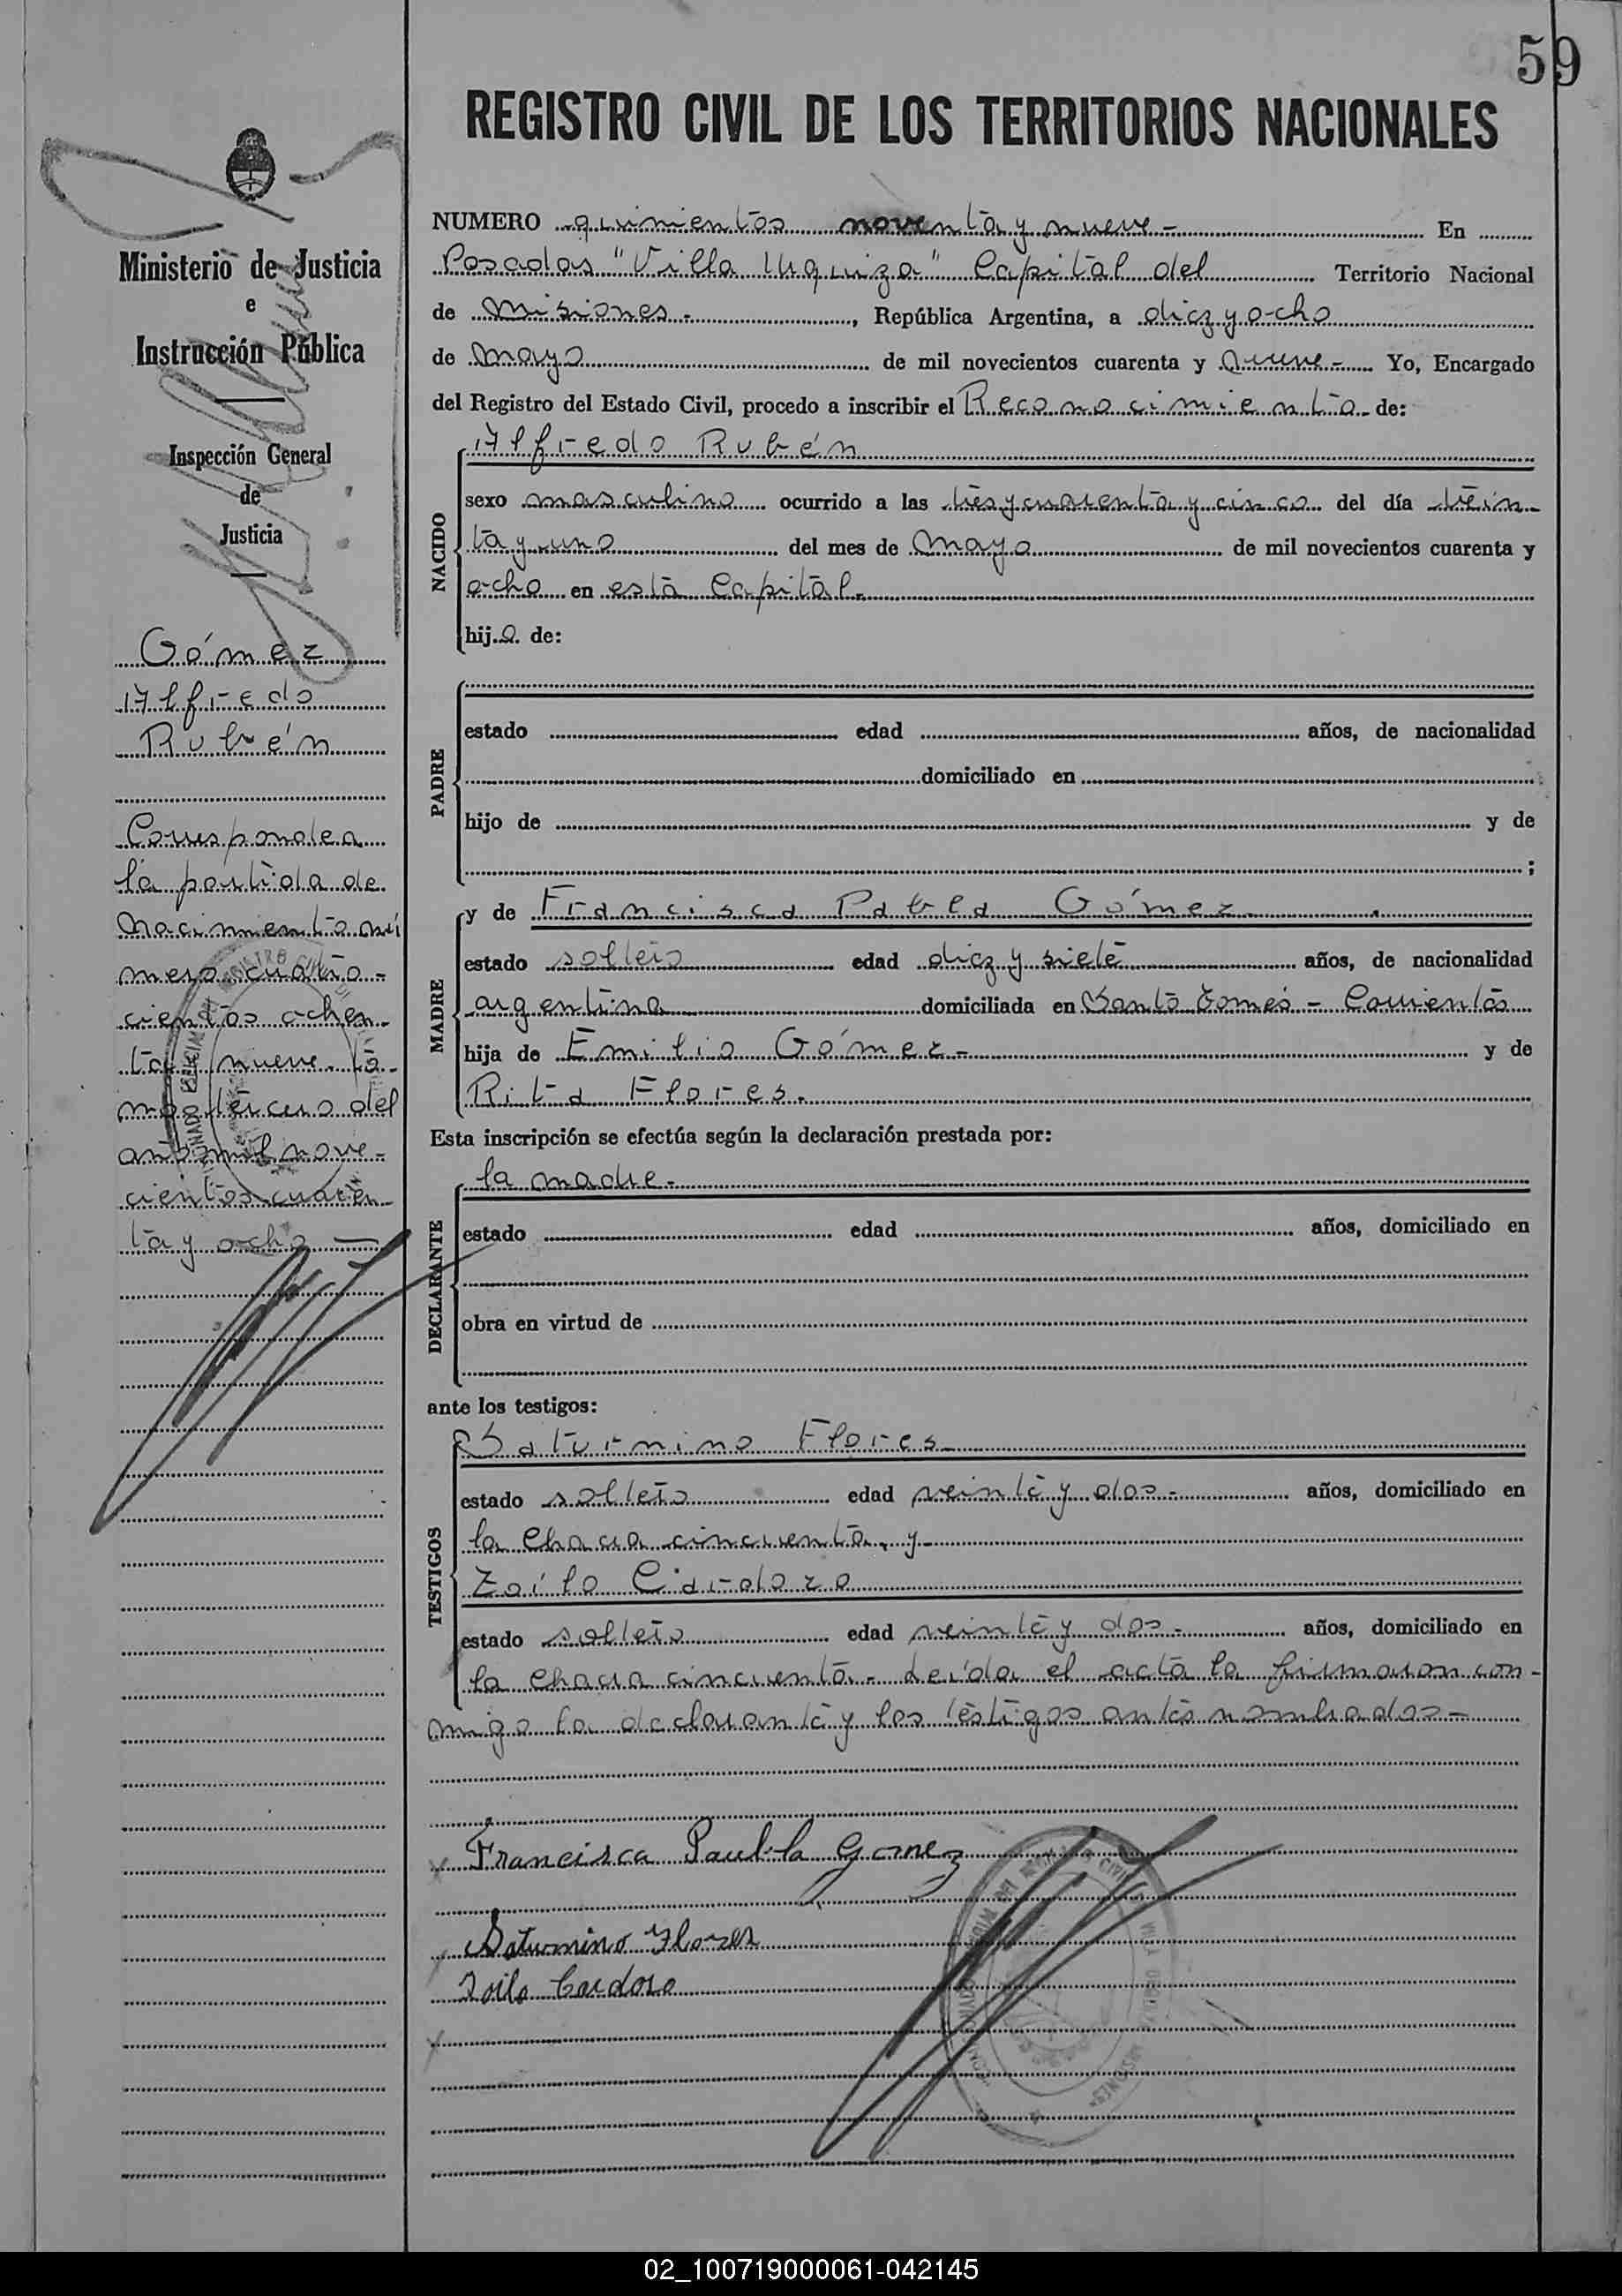 59
REGISTRO CIVIL DE LOS TERRITORIOS NACIONALES
Ministerio de Justicia
e
Instrucción Pública
Inspección General
de
Justicia
Gómez
Alfredo
Rubén
Corresponde a
la partida de
nacimiento nú
mero cuatro-
cientos ochen-
ta y nueve. to-
mo tercero del
año mil nove-
cientos cuaren-
ta y ocho —
NUMERO quinientos noventa y nueve - En
Posadas "Villa Urquiza" Capital del Territorio Nacional
de Misiones - , República Argentina, a diez y ocho
de mayo de mil novecientos cuarenta y nueve - Yo, Encargado
del Registro del Estado Civil, procedo a inscribir el Reconocimiento de:
NACIDO
Alfredo Rubén
sexo masculino ocurrido a las tres y cuarenta y cinco del día trein-
ta y uno del mes de mayo de mil novecientos cuarenta y
ocho en esta Capital.
hijo de:
PADRE
estado edad años, de nacionalidad
domiciliado en
hijo de y de
;
MADRE
y de Francisca Pabla Gómez
estado soltera edad diez y siete años, de nacionalidad
argentina domiciliada en Santo Tomé - Corrientes
hija de Emilio Gómez - y de
Rita Flores.
Esta inscripción se efectúa según la declaración prestada por:
DECLARANTE
la madre.
estado edad años, domiciliado en
obra en virtud de
ante los testigos:
TESTIGOS
Saturnino Flores
estado soltero edad veinte y dos - años, domiciliado en
la chacra cincuenta, y
Zoilo Cardozo
estado soltero edad veinte y dos - años, domiciliado en
la chacra cincuenta - Leída el acta la firmaron con-
migo la declarante y los testigos antes nombrados -
Francisca Paubla Gomez
Saturnino Flores
Zoilo Cardoso
02_100719000061-042145